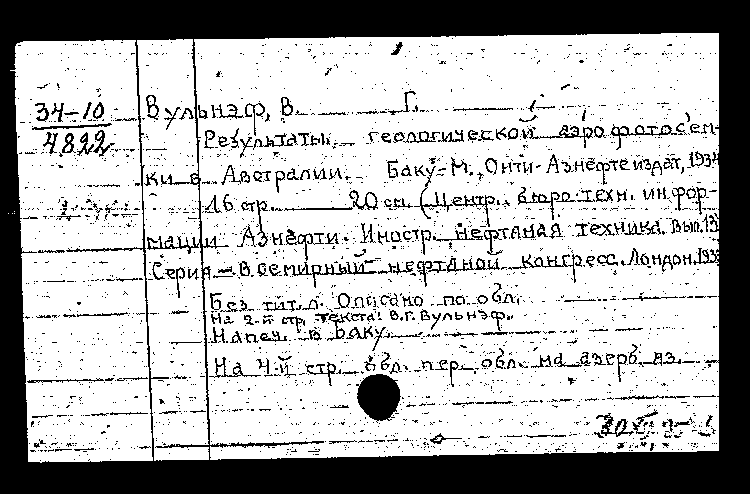 34-10
4822
Вульнэф, В. Г.
Результаты геологической аэрофотосъем-
ки в Австралии. Баку-М., Онти-Азнефтеиздат, 1934
16 стр. 20 см. (Центр. бюро техн. инфор-
мации Азнефти. Иностр. нефтяная техника. Вып. 13
Серия - Всемирный нефтяной конгресс. Лондон. 193
Без тит. л. Описано по обл.
На 2-й стр. текста: В.Г. Вульнэф.
Напеч. в Баку.
На 4-й стр. обл. пер. обл. на азерб. яз.